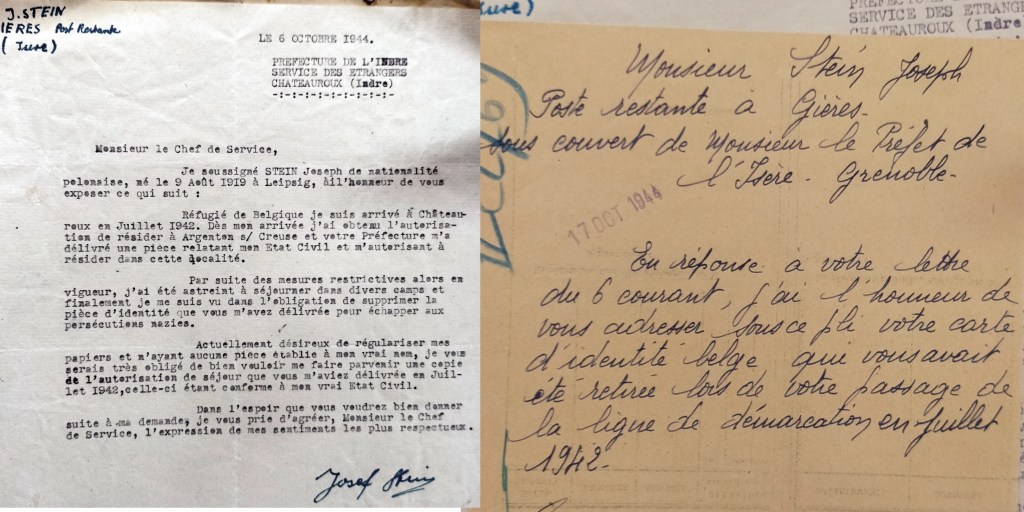 J. STEIN
IERES Post Restante
(Isere)
LE 6 OCTOBRE 1944.
PREFECTURE DE L'INDRE
SERVICE DES ETRANGERS
CHATEAUROUX (Indre)
-:-:-:-:-:-:-:-:-:-
Monsieur le Chef de Service,
Je soussigné STEIN Joseph de nationalité
polonaise, né le 9 Août 1919 à Leipsig, ai l'honneur de vous
exposer ce qui suit :
Réfugié de Belgique je suis arrivé à Château-
roux en Juillet 1942. Dès mon arrivée j'ai obtenu l'autorisa-
tion de résider à Argenton s/ Creuse et votre Préfecture m'a
délivré une pièce relatant mon Etat Civil et m'autorisant à
résider dans cette localité.
Par suite des mesures restrictives alors en
vigueur, j'ai été astreint à séjourner dans divers camps et
finalement je me suis vu dans l'obligation de supprimer la
pièce d'identité que vous m'avez délivrée pour échapper aux
persécutions nazies.
Actuellement désireux de régulariser mes
papiers et n'ayant aucune piece établie à mon vrai nom, je vous
serais très obligé de bien vouloir me faire parvenir une copie
de l'autorisation de séjour que vous m'aviez délivrée en Juil-
let 1942,celle-ci étant conforme à mon vrai Etat Civil.
Dans l'espoir que vous voudrez bien donner
suite à ma demande, je vous prie d'agréer, Monsieur le Chef
de Service, l'expression de mes sentiments les plus respectueux.
Josef Stein
sere)
PREFECTURE DE
SERVICE DES ETRANG
CHATEAUROUX (Indre
Monsieur Stein Joseph
Poste restante à Gières.
sous couvert de Monsieur le Préfet de
l'Isère. Grenoble.
17 OCT 1944
En réponse à votre lettre
du 6 courant, j'ai l'honneur de
vous adresser sous ce pli votre carte
d'identité belge qui vous avait
été retirée lors de votre passage de
la ligne de démarcation en juillet
1942.